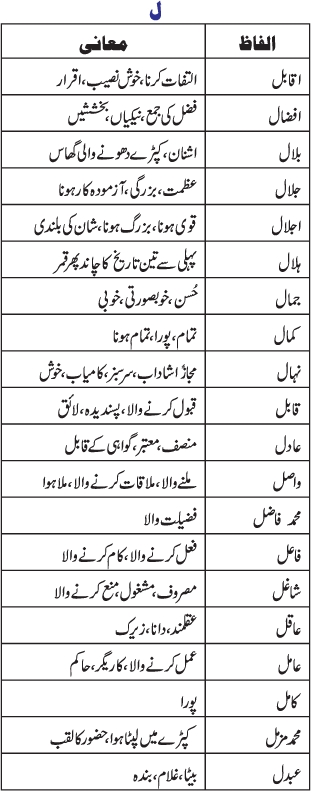 ل
الفاظ معانی
اقابل التفات کرنا، خوش نصیب، اقرار
افضال فضل کی جمع، نیکیاں، بخششیں
بلال اشنان، کپڑے دھونے والی گھاس
جلال عظمت، بزرگی، آزمودہ کار ہونا
اجلال قوی ہونا، بزرگ ہونا، شان کی بلندی
ہلال پہلی سے تین تاریخ کا چاند پھر قمر
جمال حُسن، خوبصورتی، خوبی
کمال تمام، پورا، تمام ہونا
نہال مجازاً شاداب، سرسبز، کامیاب، خوش
قابل قبول کرنے والا، پسندیدہ، لائق
عادل منصف، معتبر، گواہی کے قابل
واصل ملنے والا، ملاقات کرنے والا، ملا ہوا
محمد فاضل فضیلت والا
فاعل فعل کرنے والا، کام کرنے والا
شاغل مصروف، مشغول، منع کرنے والا
عاقل عقلمند، دانا، زیرک
عامل عمل کرنے والا، کاریگر، حاکم
کامل پورا
محمد مزمل کپڑے میں لپٹا ہوا، حضور کا لقب
عبدل بیٹا، غلام، بندہ